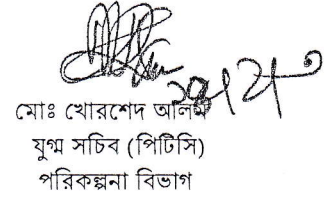 মোঃ খোরশেদ আলম
যুগ্ম সচিব (পিটিসি)
পরিকল্পনা বিভাগ